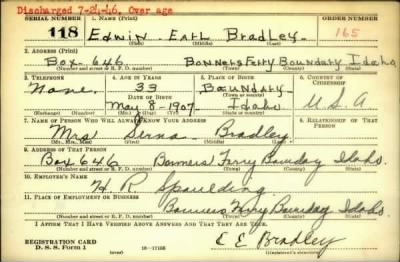 Discharged 7-24-46, Over age
SERIAL NUMBER 1. NAME (Print) ORDER NUMBER
118 Edwin Earl Bradley 165
(First) (Middle) (Last)
2. ADDRESS (Print)
Box-646 Bonners Ferry Boundary Idaho
(Number and street or R. F. D. number) (Town) (County) (State)
3. TELEPHONE 4. AGE IN YEARS 5. PLACE OF BIRTH 6. COUNTRY OF CITIZENSHIP
None. 33 Boundary
DATE OF BIRTH (Town or county)
May 8-1907. Idaho U.S.A
(Exchange) (Number) (Mo.) (Day) (Yr.) (State or country)
7. NAME OF PERSON WHO WILL ALWAYS KNOW YOUR ADDRESS 8. RELATIONSHIP OF THAT PERSON
Mrs Bradley
(Mr., Mrs., Miss) (First) (Middle) (Last)
9. ADDRESS OF THAT PERSON
Box 646 Bonners Ferry Idaho.
(Number and street or R. F. D. number) (Town) (County) (State)
10. EMPLOYER'S NAME
H. R. Spaulding
11. PLACE OF EMPLOYMENT OR BUSINESS
Bonners Ferry Idaho.
(Number and street or R. F. D. number) (Town) (County) (State)
I AFFIRM THAT I HAVE VERIFIED ABOVE ANSWERS AND THAT THEY ARE TRUE.
REGISTRATION CARD
D. S. S. Form 1 16-17105 E E Bradley